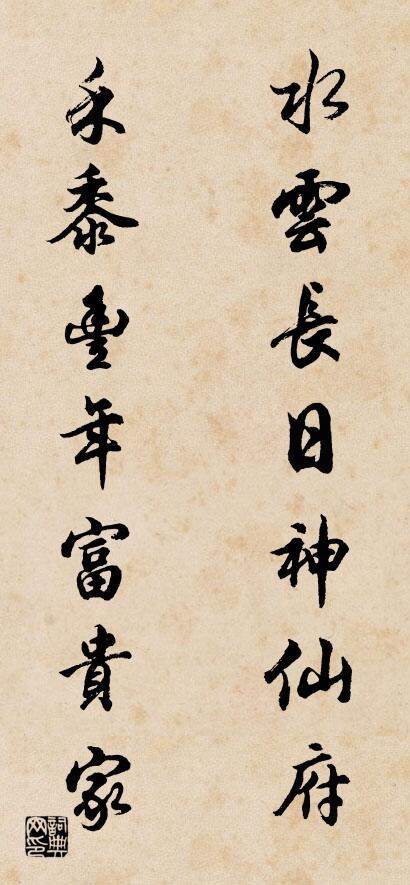 水雲長日神仙府
禾黍豐年富貴家
詞典網印